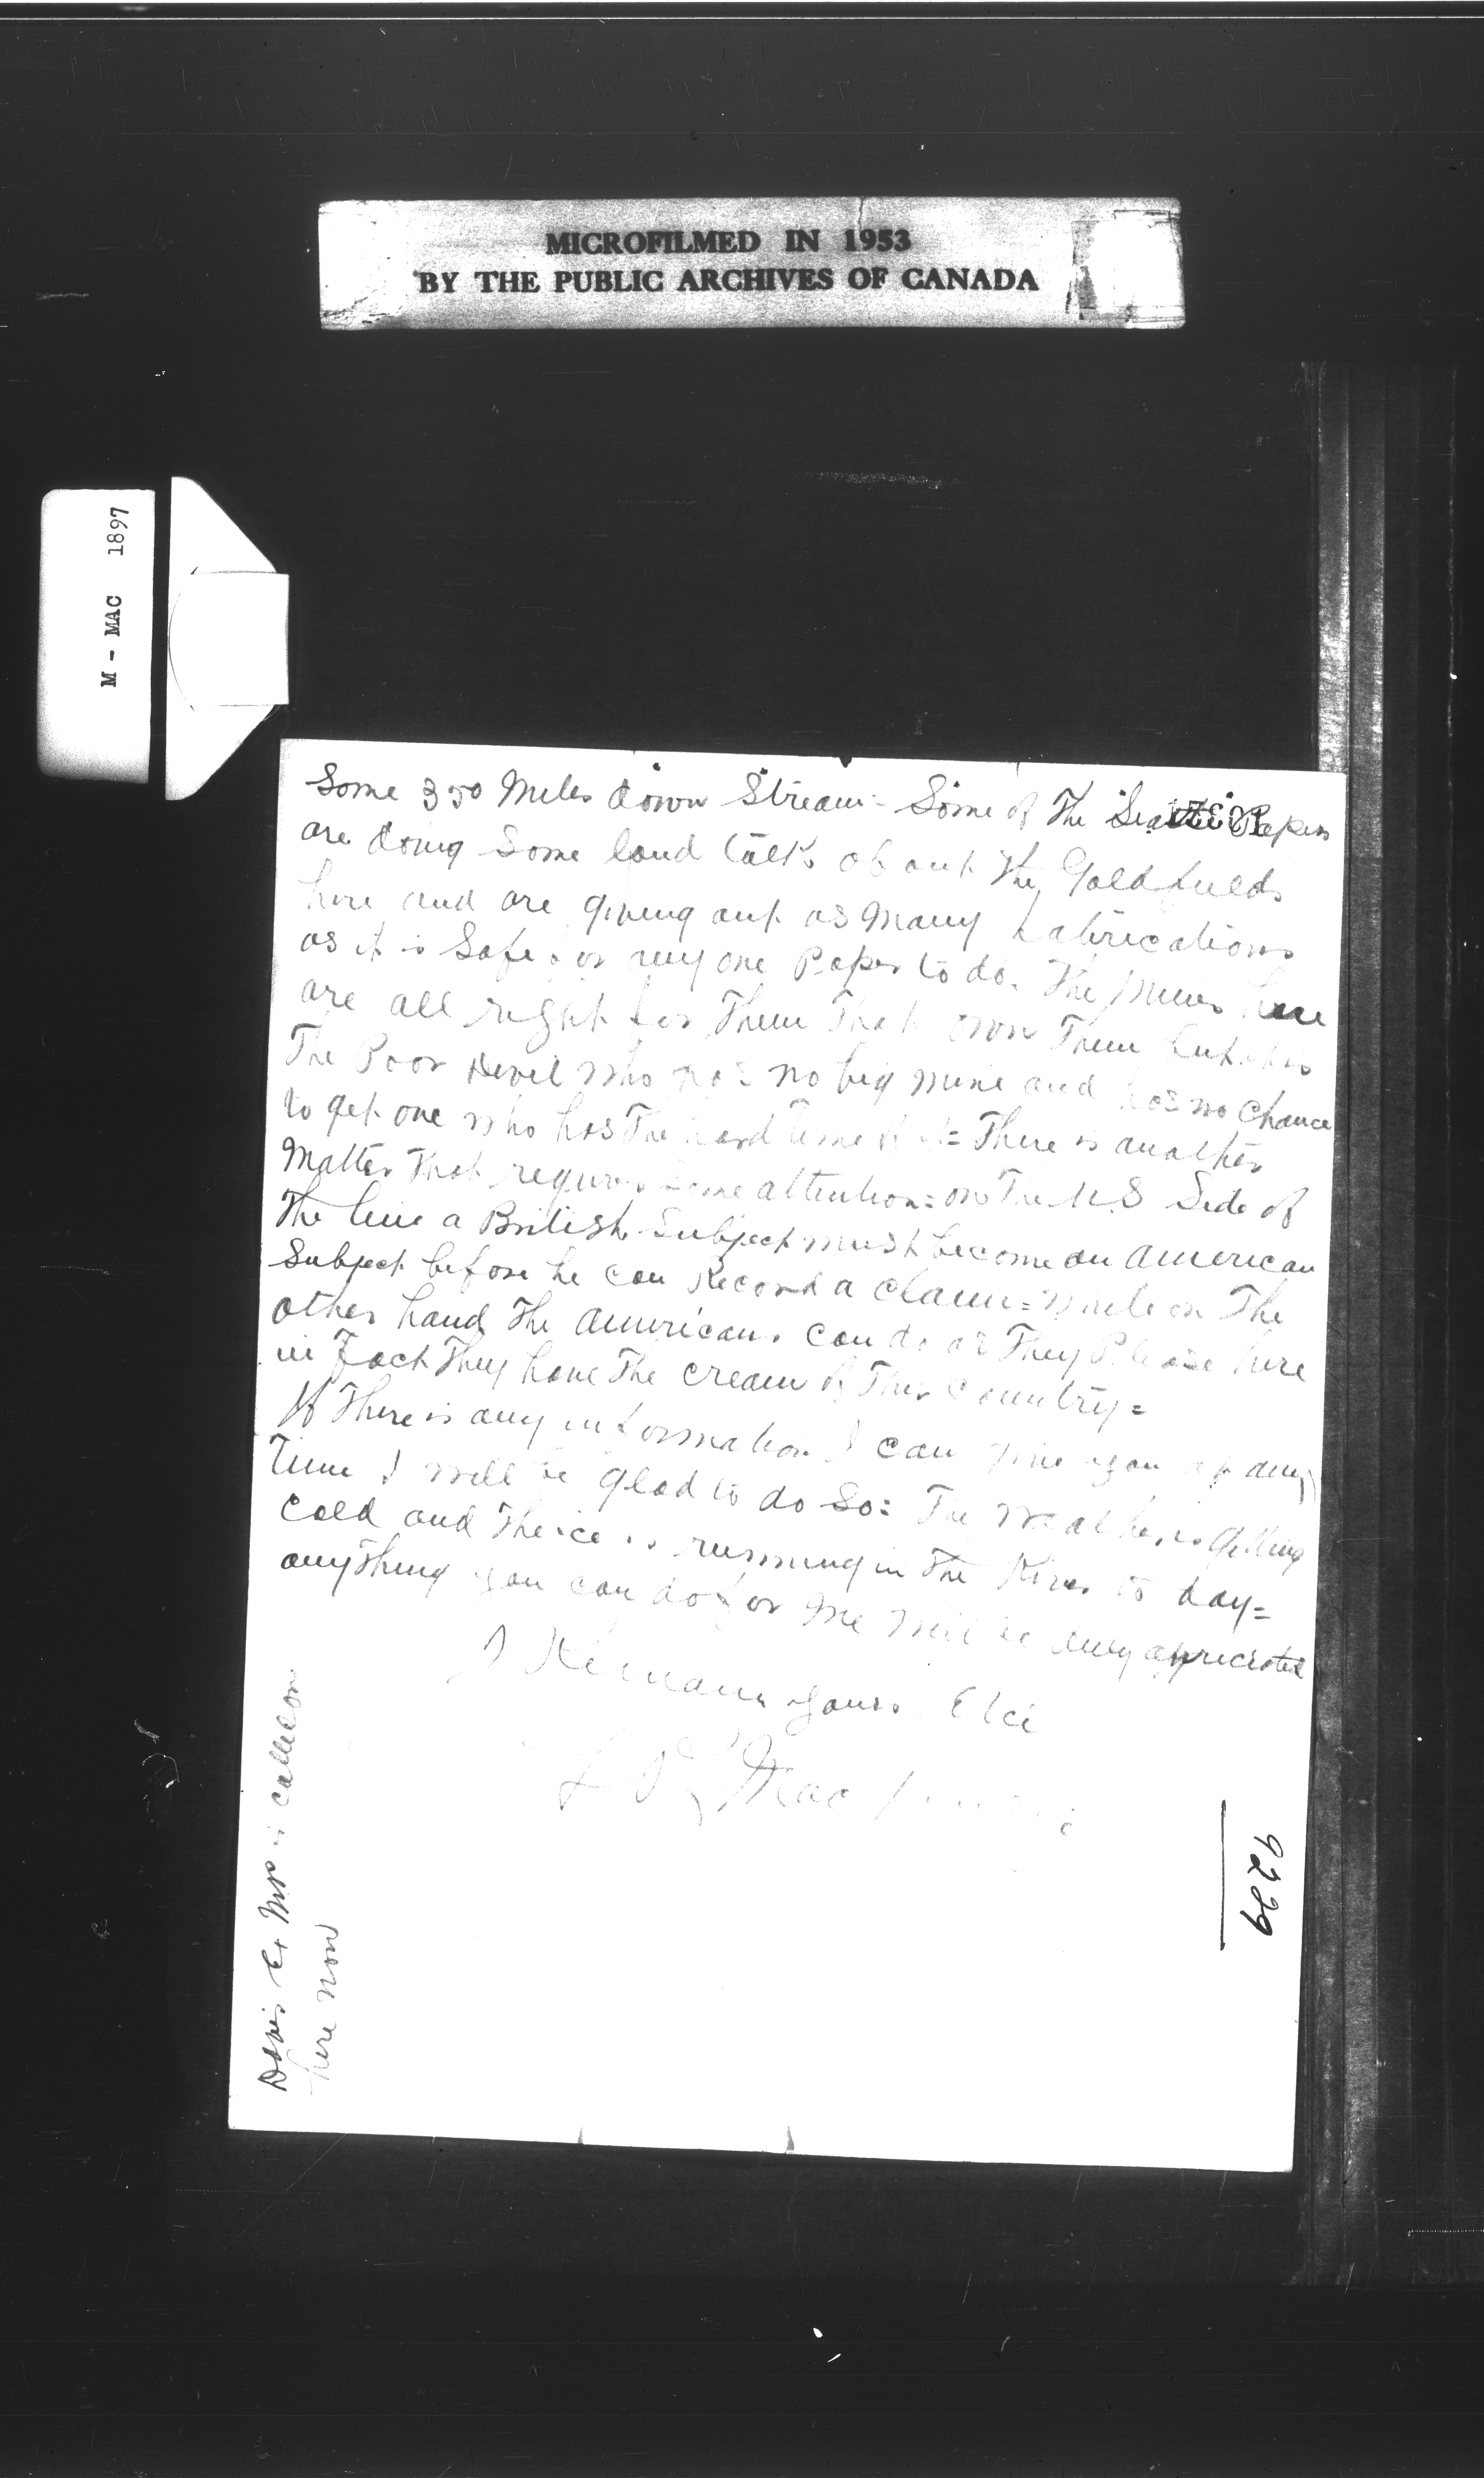 MICROFILMED IN 1953
BY THE PUBLIC ARCHIVES OF CANADA
M - MAC 1897
Some 350 Miles down Stream = Some of The Seattle Papers
are doing Some loud talk about The Goldfields
here and are giving out as Many Fabrications
as it is Safe for any one Paper to do. The Mines here
are all right for Them That own Them but it is
The Poor Devil who has no big mine and has no Chance
to get one who has The hard time of it = There is another
Matter That requires Some attention = on The U.S Side of
The line a British Subject must become an American
Subject before he can Record a Claim = While on The
other hand The Americans can do as They Please here
in Fact They have The cream of This Country =
If There is any information I can give you at any
Time I will be glad to do So = The Weather is getting
Cold and The ice is running in The River to day =
anything you can do for Me will be duly appreciated
I Remain yours Etc
Mac
Davis Ex M.P. is collector
here now
9229